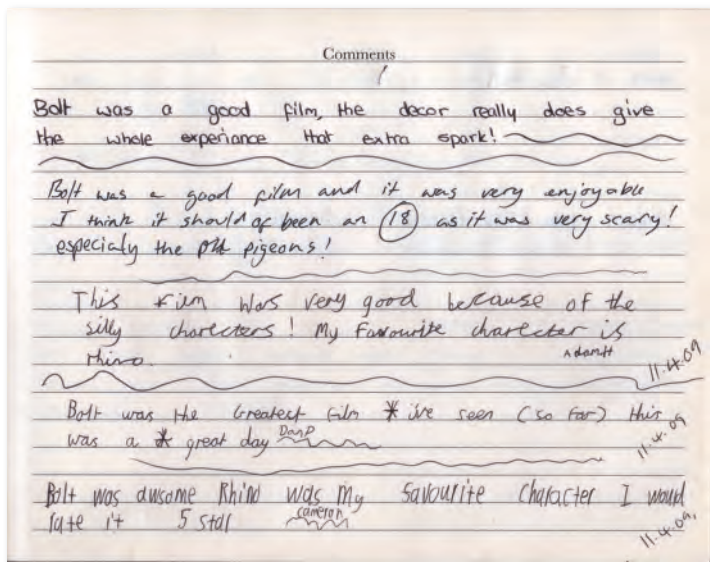 Comments
Bolt was a good film, the decor really does give
the whole experiance that extra spark!
Bolt was a good film and it was very enjoyable
I think it should of been an 18 as it was very scary!
especialy the pigeons!
This film was very good because of the
silly charecters! My favourite charecter is
rhino.
Adam H
11.4.09
Bolt was the Greatest film * ive seen (so far) this
was a * great day Dan D
11.4.09
Bolt was awsome Rhino was my favourite character I would
rate it 5 star cameron
11.4.09,